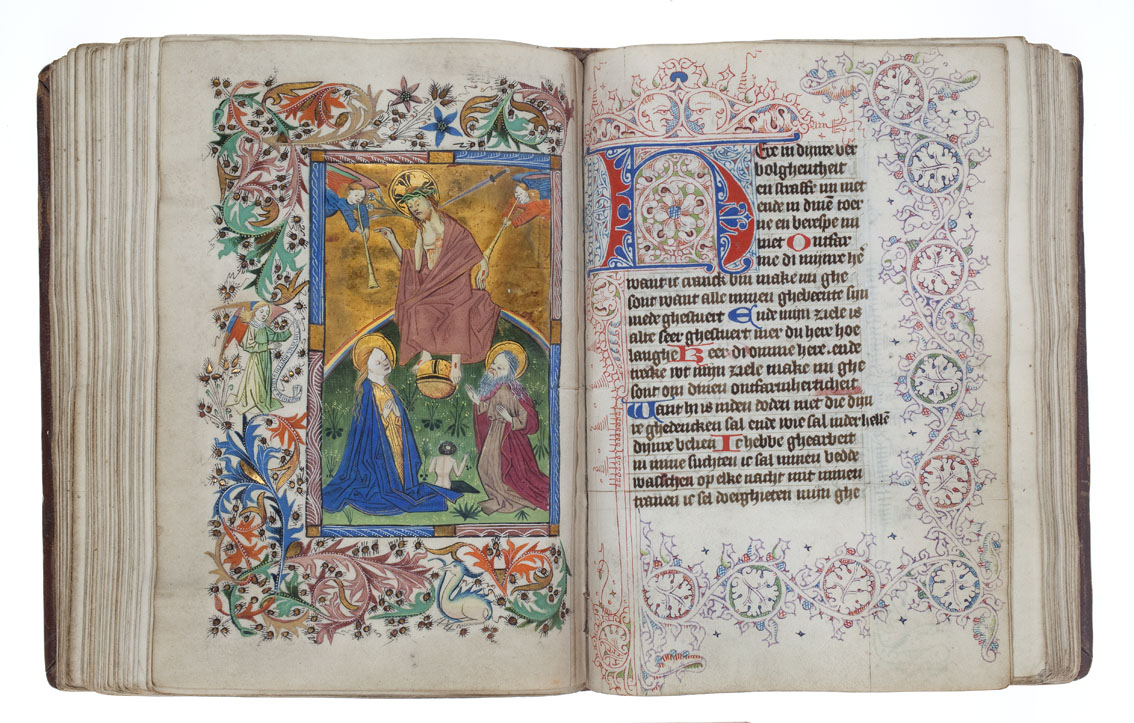 Ere in dijnre ver
bolghentheit
en straffe mi niet
ende in dinē toer
ne en berespe mi
niet Ontfar
me di mijnre hē
want ic cranck bin make mi ghe
sont want alle minen ghebeente sijn
mede ghestuert Ende mijn ziele is
alte seer ghestuert mer du here hoe
langhe Keer di omme here. ende
trecke wt mijn ziele make mi ghe
sont om dinen ontfarmherticheit
Want hi is inden doden niet die dijn
re ghedencken sal ende wie sal inder hellē
dijnre belien Ic hebbe ghearbeit
in mine suchten ic sal minen bedde
wasschen op elke nacht mit minen
tranen ic sel dweighieten mijn ghe